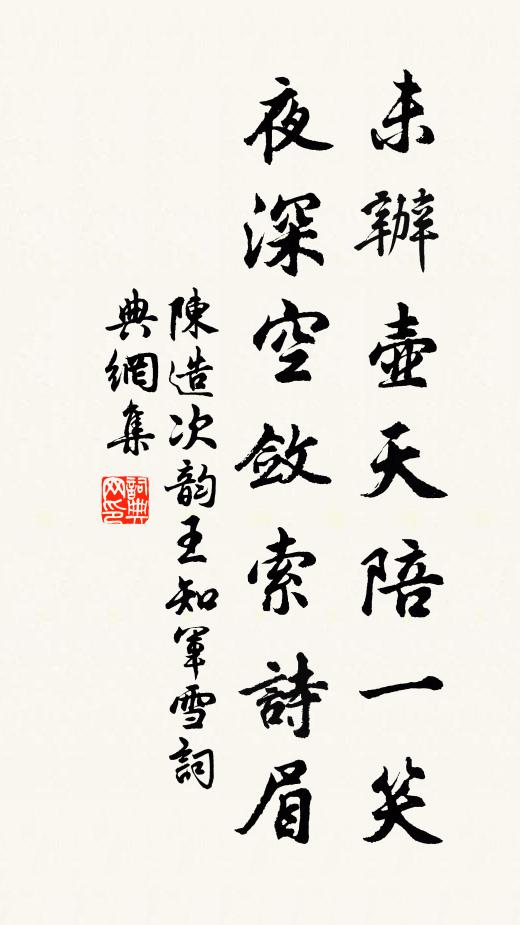 未辦壺天陪一笑
夜深空斂索詩眉
陳造次韵王知軍雪詞
典網集
詞典网印